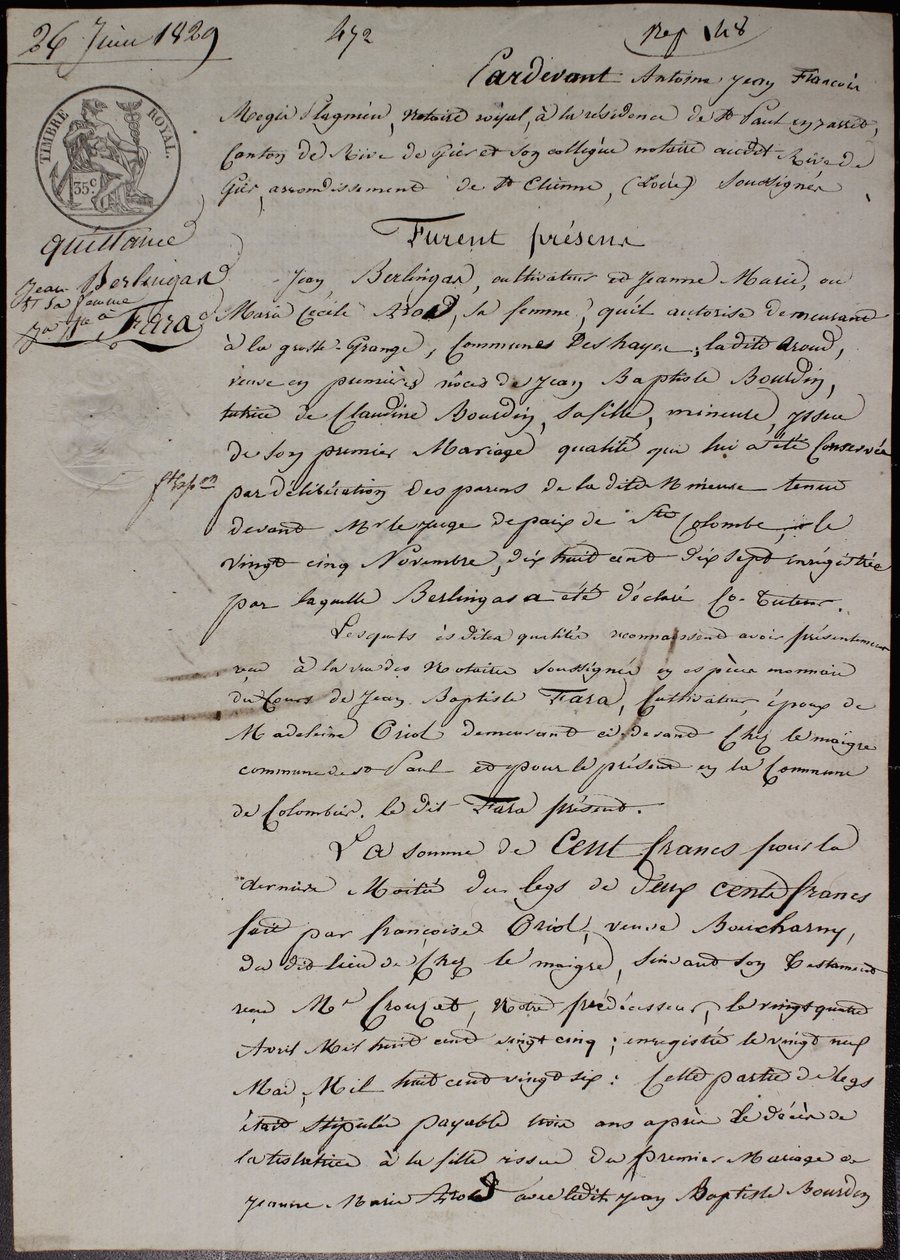 26 Juin 1829
472
Rep 148
TIMBRE ROYAL.
35c
quittance
Jean Berlingas
et sa femme
à Fara
Pardevant Antoine Jean François
notaire royal, à la résidence de St Paul en jarret,
Canton de Rive de Gier et son collègue notaire audit Rive de
Gier, arrondissement de St Etienne, (Loire) soussignés
Furent présens
Jean Berlingas, cultivateur et Jeanne Marie, ou
Marie Cécile Aroud, sa femme, qu'il autorise demeurant
à la grosse Grange, Communes Deshayes, ladite Aroud,
veuve en premières nôces de Jean Baptiste Bourdin,
tutrice de Claudine Bourdin, sa fille, mineure, yssue
de son premier Mariage qualité qui lui a été Conservée
par délibération des parens de la dite Mineuse tenue
devant Mr le juge de paix de Ste Colombe, le
vingt cinq Novembre, dix huit cent dix sept enrégistrée
par laquelle Berlingas a été déclaré Co-Tuteur.
Lesquels ès dites qualités reconnaissent avoir présentement
reçu à la vue des Notaires soussignés en espèces monnaie
du Cours de Jean Baptiste Fara, Cultivateur, époux de
Madeleine Oriol demeurant ci-devant Chez le maigre
commune de St Paul et pour le présent en la Commune
de Colombier. le dit Fara présent.
La somme de Cent francs pour la
dernière Moitié du legs de deux cents francs
fait par françoise Oriol, veuve Boucharny,
du dit lieu de Chez le maigre, suivant son Testament
reçu Me Crouzet, Notre prédécesseur, le vingt quatre
Avril Mil huit cent vingt cinq; enregistré le vingt neuf
Mai, Mil huit cent vingt six: Cette partie de legs
était stipulée payable trois ans après le décès de
la testatrice à la fille issue du premier Mariage de
Jeanne Marie Aroud avec ledit Jean Baptiste Bourdin